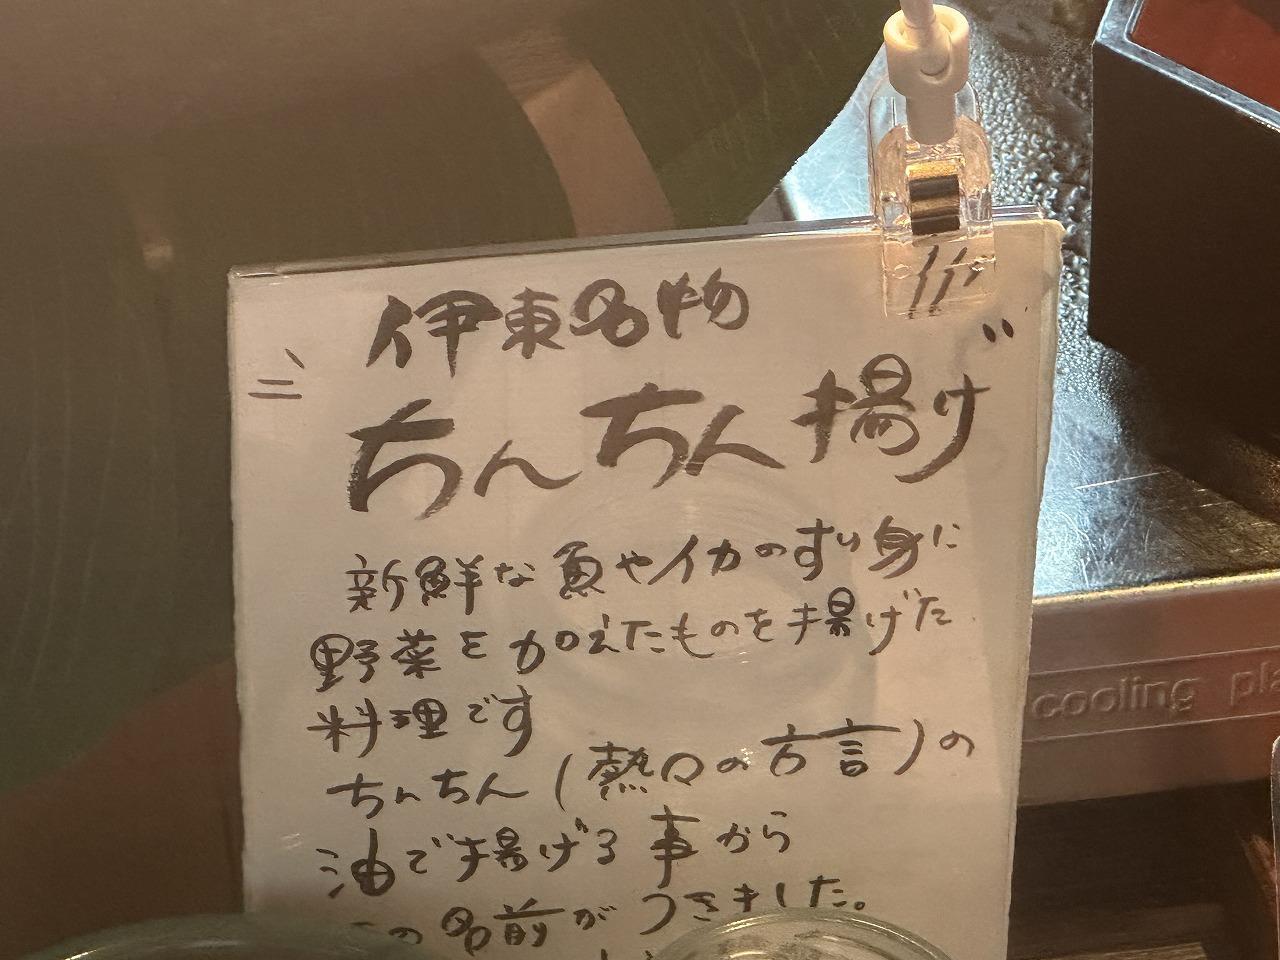 伊東名物
ちんちん揚げ
新鮮な魚やイカのすり身に
野菜を加えたものを揚げた
料理です
ちんちん(熱々の方言)の
油で揚げる事から
の名前がつきました。
cooling